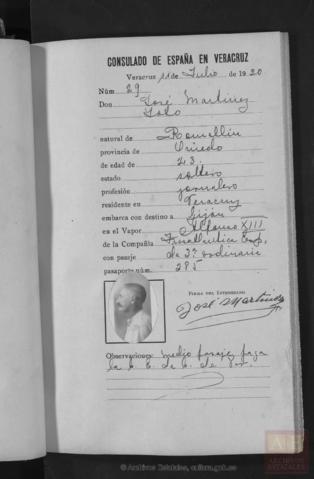 CONSULADO DE ESPAÑA EN VERACRUZ
Veracruz 11 de Julio de 1920
Núm 29
Don José Martinez
natural de
provincia de Oviedo
de edad de 23
estado soltero
profesión jornalero
residente en Veracruz
embarca con destino a Gijón
en el Vapor Alfonso XIII
de la Compañía Trasatlántica Esp.
con pasaje de 3ª ordinaria
pasaporte núm. 285
FIRMA DEL INTERESADO
José Martinez
Observaciones: medio pasaje paga
la
ARCHIVOS
ESTATALES
© Archivos Estatales, cultura.gob.es